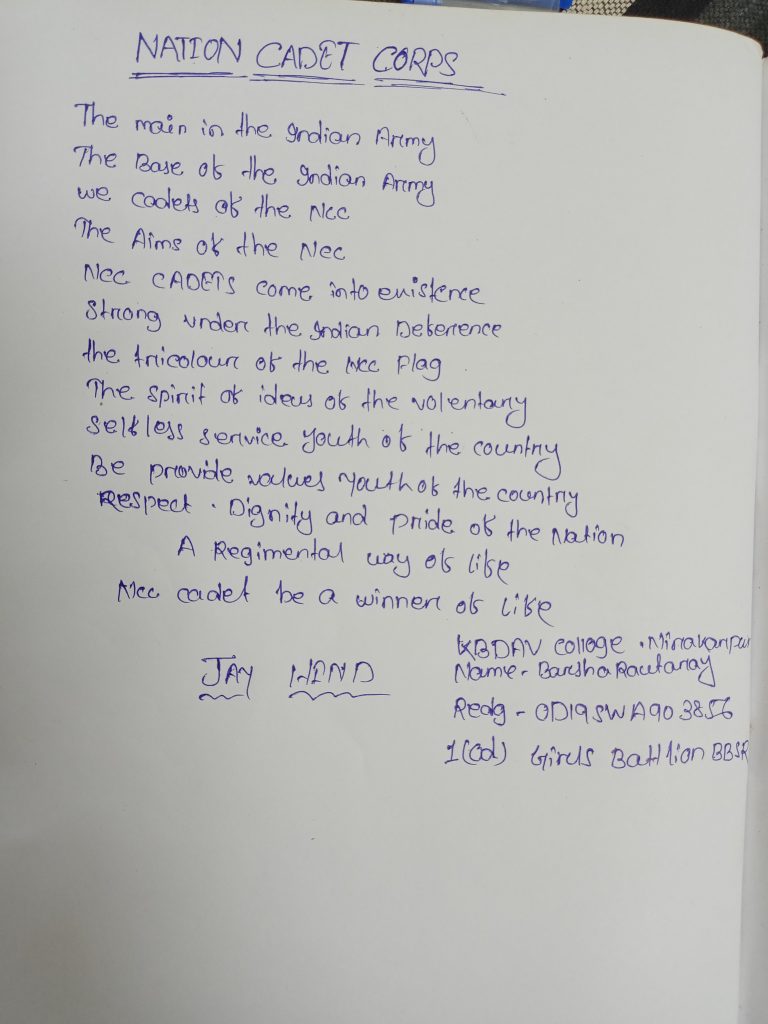 NATION CADET CORPS
The main in the Indian Army
The Base of the Indian Army
we cadets of the Ncc
The Aims of the Ncc
Ncc CADETS come into existence
Strong under the Indian Deterrence
the tricolour of the Ncc Flag
The spirit of ideas of the volentary
Selfless service youth of the country
Be provide values youth of the country
Respect . Dignity and pride of the Nation
A Regimental way of life
Ncc cadet be a winner of life
JAY HIND
KBDAV College . Nirakarpur
Name - Barsha Rautaray
Redg - OD19SWA903856
1(Od) Girls Battlion BBSR